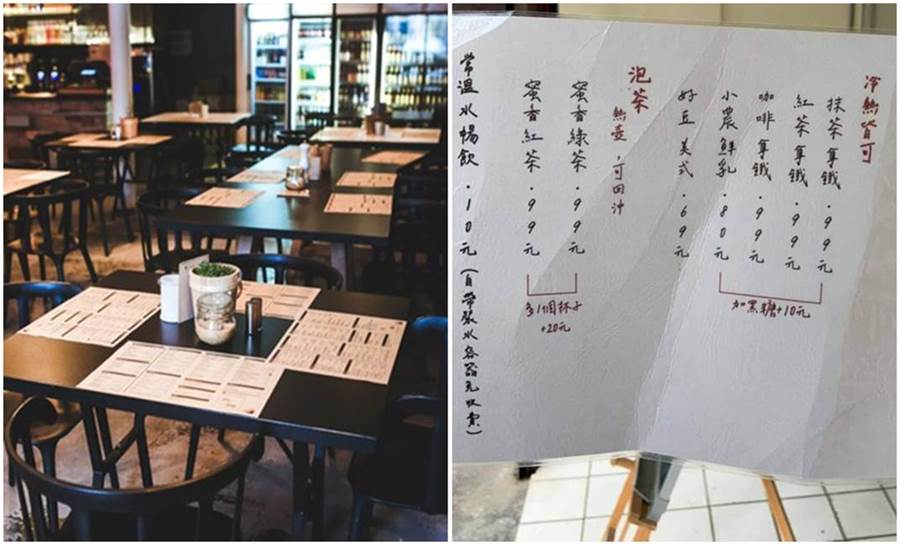 冷熱皆可
抹茶拿鐵．99元
紅茶拿鐵．99元
咖啡拿鐵．99元
小農鮮乳．80元
加黑糖+10元
好豆美式．69元
泡茶
熱壺，可回沖
蜜香綠茶．99元
蜜香紅茶．99元
多1個杯子
+20元
常溫水暢飲．10元(自帶裝水容器免收費)